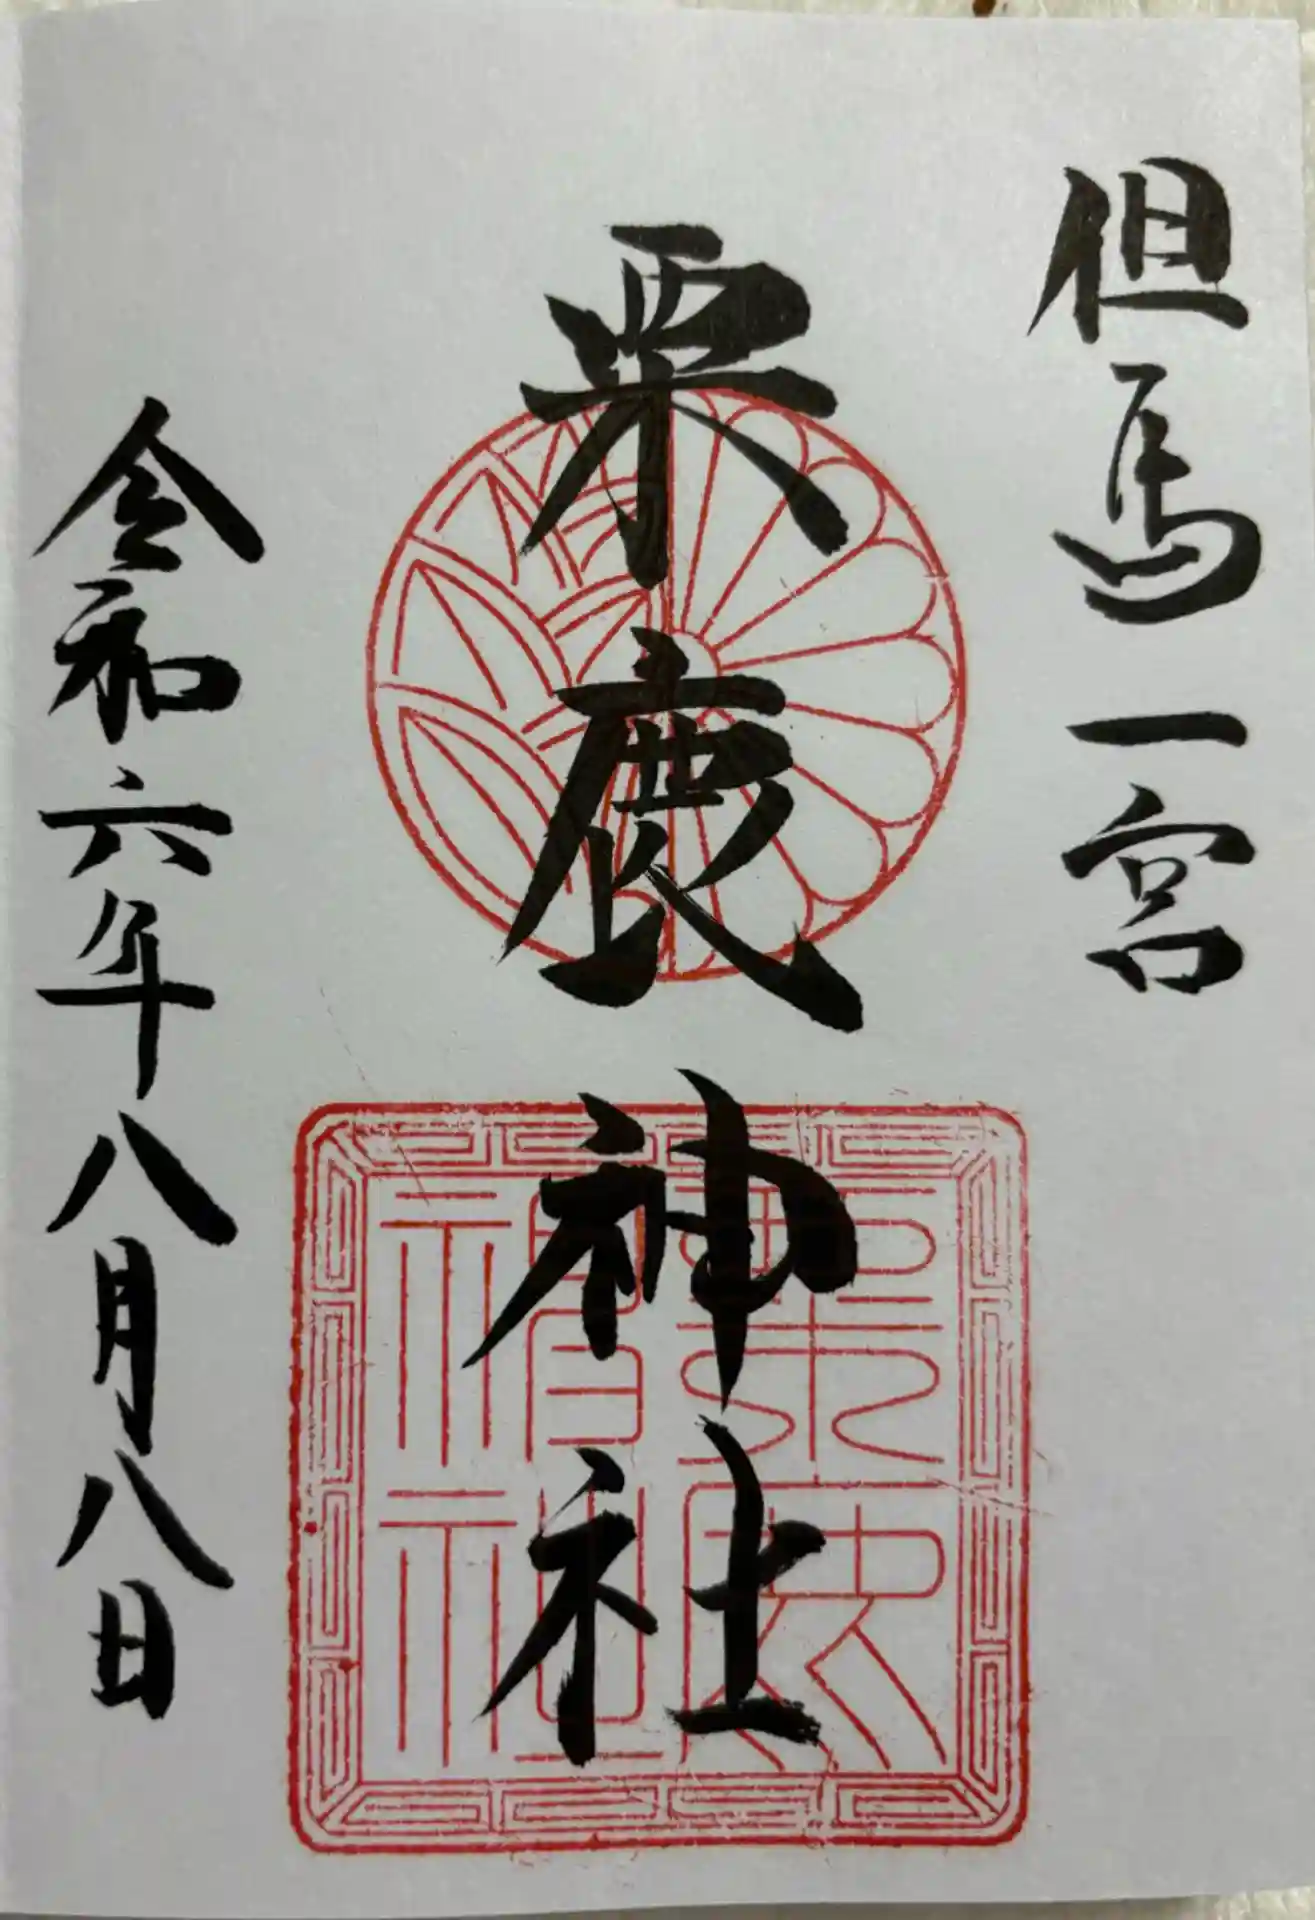 但馬一宮
粟鹿神社
令和六年八月八日
粟鹿神社